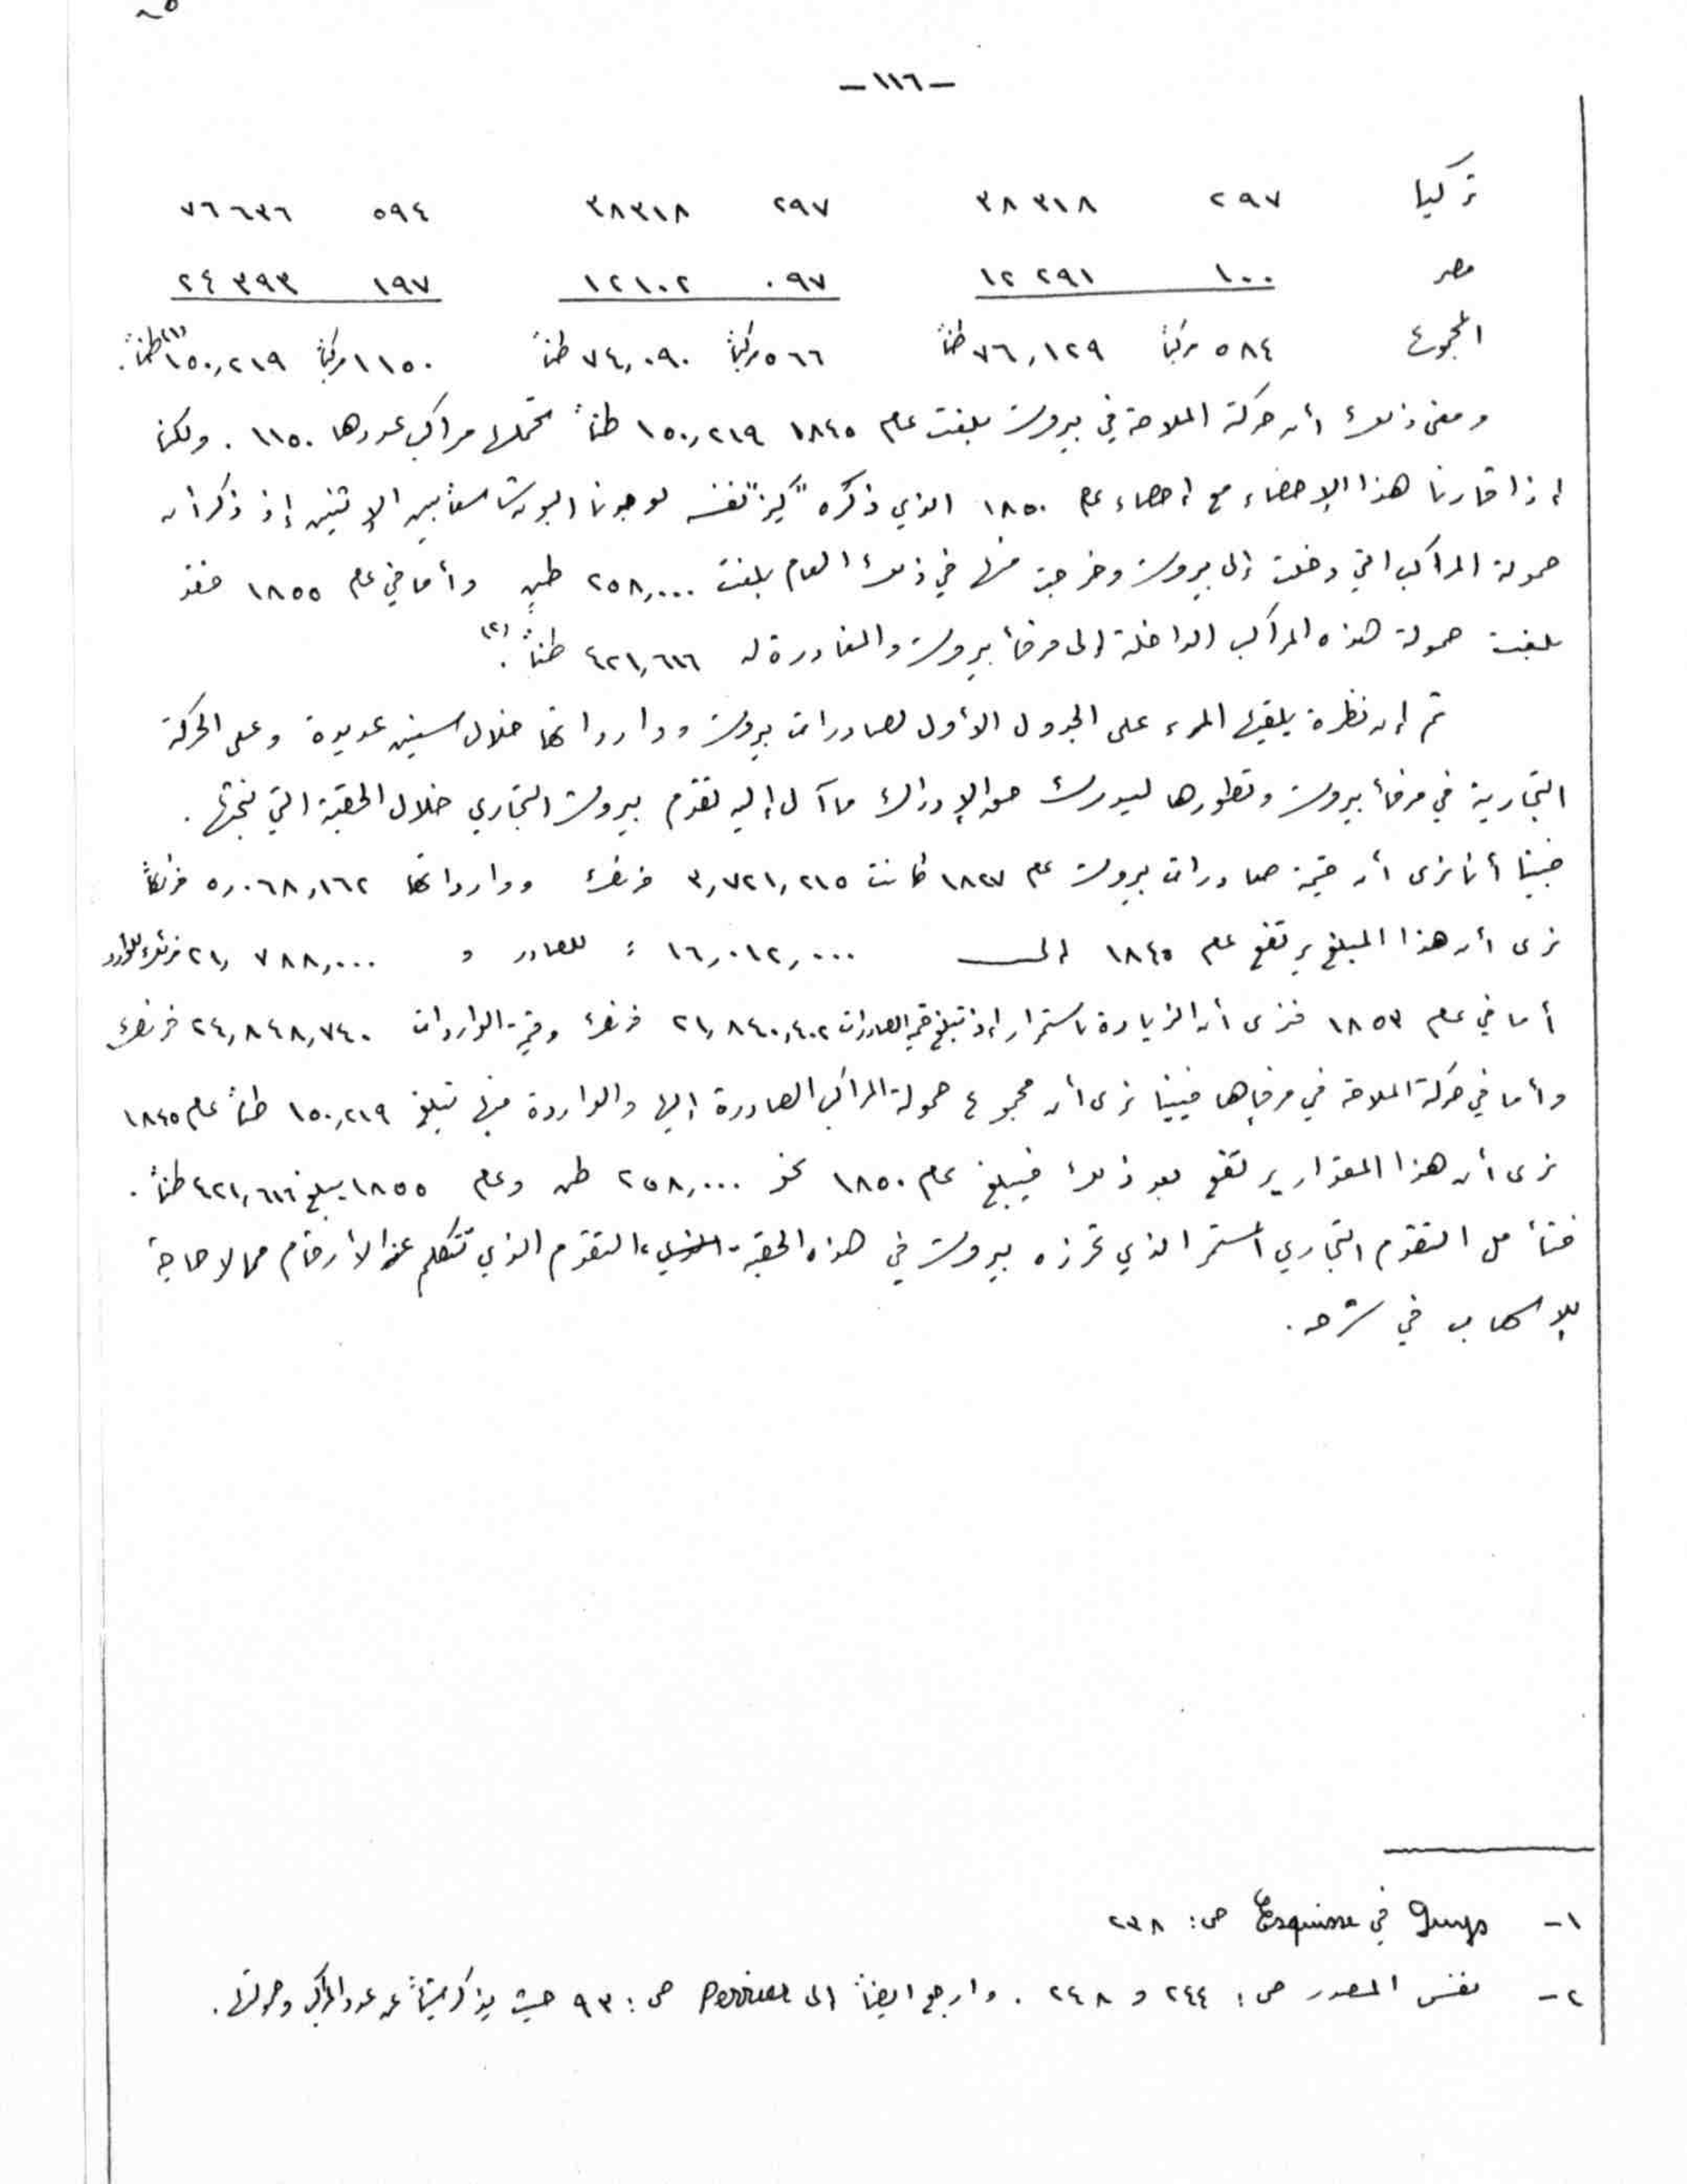 -١١٦-
تركيا ٢٩٧ ٣٨٣١٨ ٢٩٧ ٣٨٣١٨ ٥٩٤ ٧٦٦٣٦
مصر ١٠٠ ١٢٢٩١ ٠٩٧ ١٢١٠٢ ١٩٧ ٢٤٣٩٣
المجموع ٥٨٤ مركباً ٧٦,١٢٩ طناً ٥٦٦ مركباً ٧٤,٠٩٠ طناً ١١٥٠ مركباً ١٥٠,٢١٩ طناً(١).
ومعنى ذلك أن حركة الملاحة في بيروت بلغت عام ١٨٤٥ ١٥٠,٢١٩ طناً تحملها مراكب عددها ١١٥٠. ولكنا
إذا قارنا هذا الإحصاء مع إحصاء عام ١٨٥٠ الذي ذكره "كيز" نفسه لوجدنا البون شاسعاً بين الإثنين إذ ذكر أن
حمولة المراكب التي دخلت إلى بيروت وخرجت منها في ذلك العام بلغت ٢٥٨,٠٠٠ طنٍ وأما في عام ١٨٥٥ فقد
بلغت حمولة هذه المراكب الداخلة إلى مرفأ بيروت والمغادرة له ٤٢١,٦١٦ طناً.(٢)
ثم إن نظرة يلقيها المرء على الجدول الأول لصادرات بيروت ووارداتها خلال سنين عديدة وعلى الحركة
التجارية في مرفأ بيروت وتطورها ليدرك حق الإدراك ما آل إليه تقدم بيروت التجاري خلال الحقبة التي نبحثها.
فبينا أننا نرى أن قيمة صادرات بيروت عام ١٨٢٧ كانت ٣,٧٢١,٢١٥ فرنك ووارداتها ٥,٠٦٨,١٦٢ فرنكاً
نرى أن هذا المبلغ يرتفع عام ١٨٤٥ إلى ١٦,٠١٢,٠٠٠ = للصادر و ٢١,٧٨٨,٠٠٠ فرنك للوارد
أما في عام ١٨٥٣ فنرى أن الزيادة باستمرار إذ تبلغ قيمة الصادرات ٢١,٨٤٠,٤٠٢ فرنك وقيمة الواردات ٢٤,٨٤٨,٧٤٠ فرنك
وأما في حركة الملاحة في مرفإها فبينا نرى أن مجموع حمولة المراكب الصادرة إليها والواردة منها تبلغ ١٥٠,٢١٩ طناً عام ١٨٤٥
نرى أن هذا المقدار يرتفع بعد ذلك فيبلغ عام ١٨٥٠ نحو ٢٥٨,٠٠٠ طن وعام ١٨٥٥ يبلغ ٤٢١,٦١٦ طناً.
فتأمل التقدم التجاري المستمر الذي تحرزه بيروت في هذه الحقبة، التقدم الذي تتكلم عنه الأرقام مما لا حاجة
للإسهاب في شرحه.
١- Guys في Esquisse ص: ٢٣٨
٢- نفس المصدر ص: ٢٤٤ و ٢٤٨. وارجع ايضاً إلى Perrier ص: ٩٣ حيث يذكر شيئاً عن عدد المراكب وحمولتها.